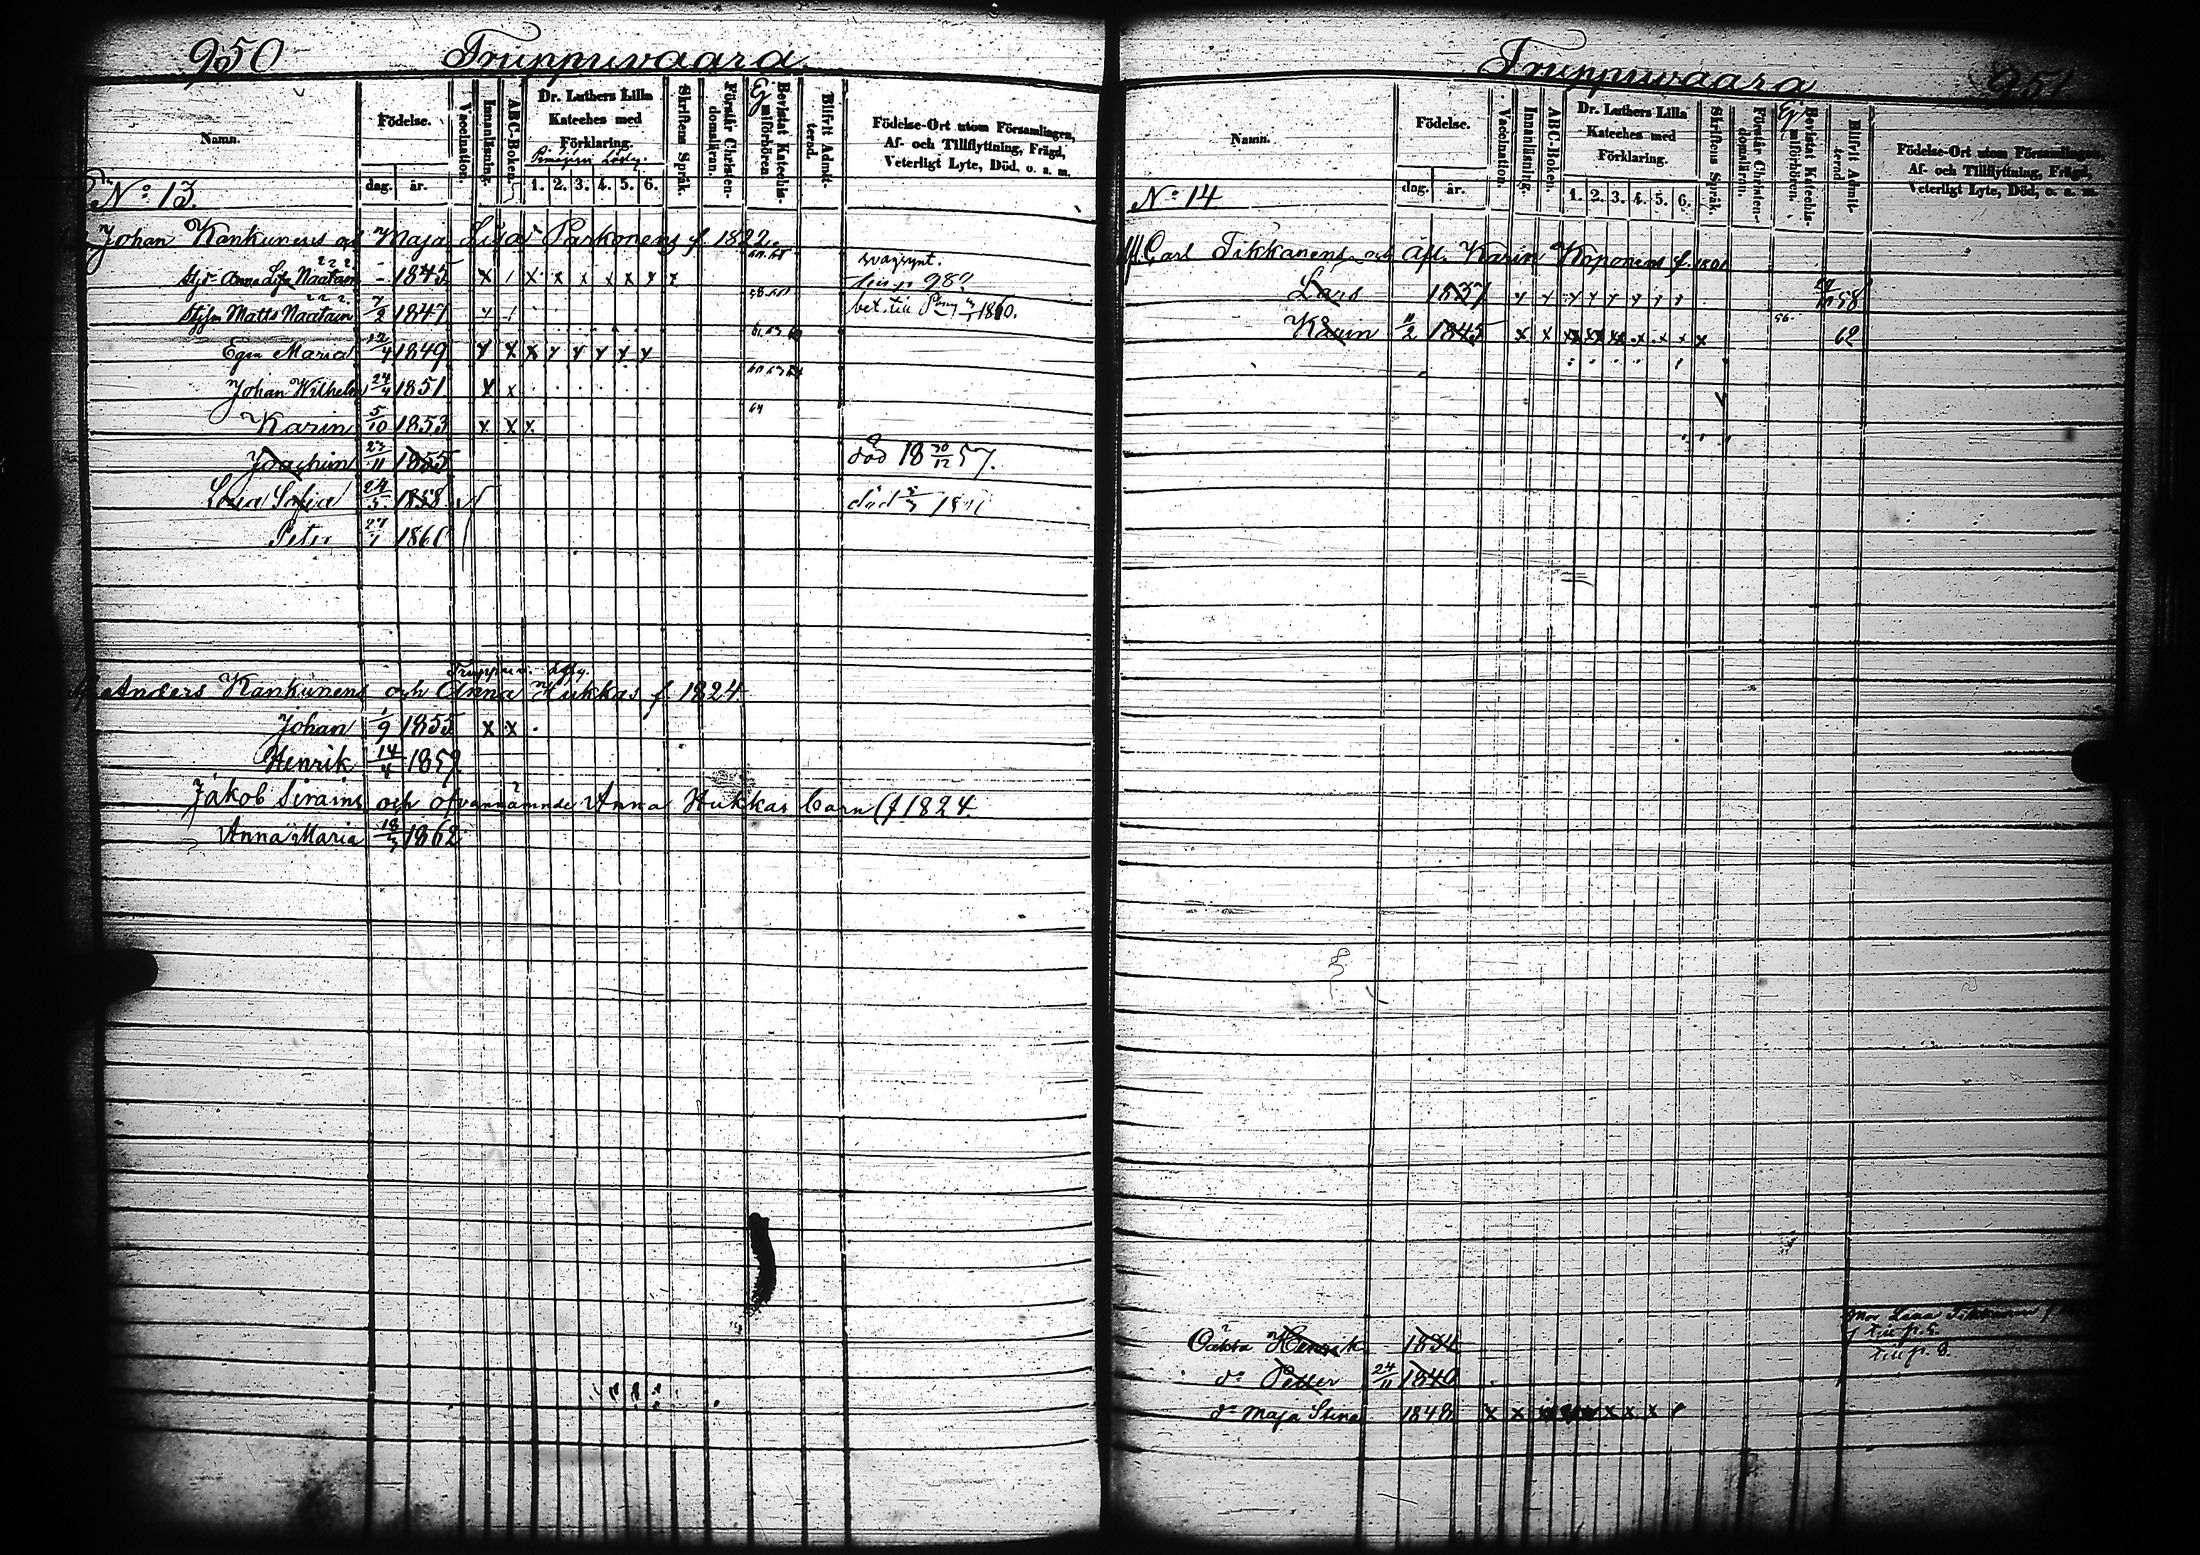 950 Truppuvaara
Namn. Födelse. dag. år. Vaccination. Innanläsning. ABC-Boken. Dr. Luthers Lilla Kateches med Förklaring. 1. 2. 3. 4. 5. 6. Skriftens Språk. Förstår Christendomsläran. Ej Bevistat Katechismiförhören Blifvit Admitterad. Födelse-Ort utom Församlingen, Af- och Tillflyttning, Frägd, Veterligt Lyte, Död, o. a. m.
No 13.
Johan Kankunens och Maja Lisa Parkonens f. 1822
Stjd Anna Lisa Naatain 1845 x / x x x x x x svagsynt.
Stjsn Matts Naatain 7/2 1847 58-60 bet. till 1860.
Egen Maria 4 1849 x x x x x x x x
Johan Wilhelm 24/4 1851 x x
Karin 5/10 1853 x x x 64
Joachim 23/11 1855 död 18 30/12 57.
Lovisa Sofia 24/5 1858 död
Peter 27/1 1860
Anders Kankunens och Anna Hukkas f 1824
Johan 1/9 1855 x x
Henrik 14/4 1859
Jakob Sirains och ofvannämnde Anna Hukkas barn (f 1824.
Anna Maria 18/3 1862
Truppuvaara 951
Namn. Födelse. dag. år. Vaccination. Innanläsning. ABC-Boken. Dr. Luthers Lilla Kateches med Förklaring. 1. 2. 3. 4. 5. 6. Skriftens Språk. Förstår Christendomsläran. Ej Bevistat Katechismiförhören. Blifvit Admitterad. Födelse-Ort utom Församlingen, Af- och Tillflyttning, Frägd, Veterligt Lyte, Död, o. a. m.
No 14
Carl Tikkanens och Afl. Karin Koponens f. 1801
Lars 1837 58
Karin 11/2 1845 x x x x x x x x x 56. 62
Oäkta Henrik 1834
do Petter 24/11 1840
do Maja Stina 1848 x x x x x